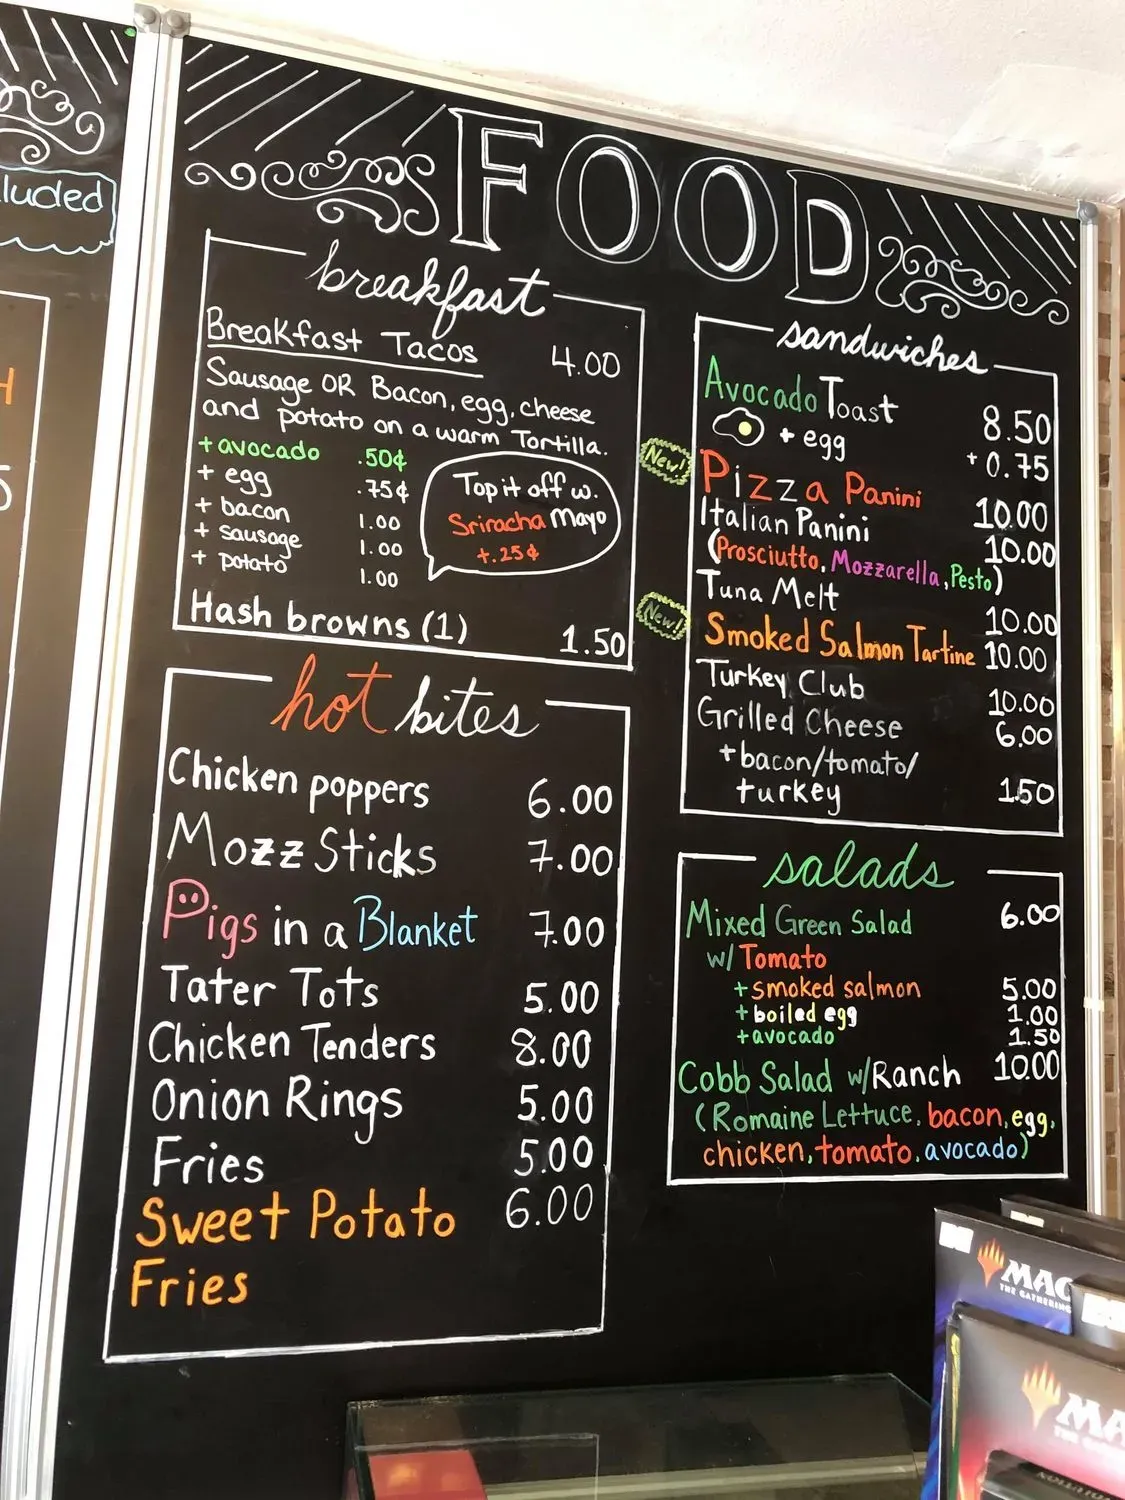 luded
FOOD
breakfast
Breakfast Tacos 4.00
Sausage OR Bacon, egg, cheese
and potato on a warm Tortilla.
+ avocado .50¢
+ egg .75¢
+ bacon 1.00
+ sausage 1.00
+ potato 1.00
Top it off w.
Sriracha Mayo
+.25¢
Hash browns (1) 1.50
hot bites
Chicken poppers 6.00
Mozz Sticks 7.00
Pigs in a Blanket 7.00
Tater Tots 5.00
Chicken Tenders 8.00
Onion Rings 5.00
Fries 5.00
Sweet Potato 6.00
Fries
sandwiches
Avocado Toast 8.50
+ egg + 0.75
New!
Pizza Panini 10.00
Italian Panini 10.00
(Prosciutto, Mozzarella, Pesto)
Tuna Melt 10.00
New!
Smoked Salmon Tartine 10.00
Turkey Club 10.00
Grilled Cheese 6.00
+bacon/tomato/
turkey 1.50
salads
Mixed Green Salad 6.00
w/ Tomato
+ smoked salmon 5.00
+ boiled egg 1.00
+ avocado 1.50
Cobb Salad w/Ranch 10.00
(Romaine Lettuce, bacon, egg,
chicken, tomato, avocado)
MAG
THE GATHERING
MA